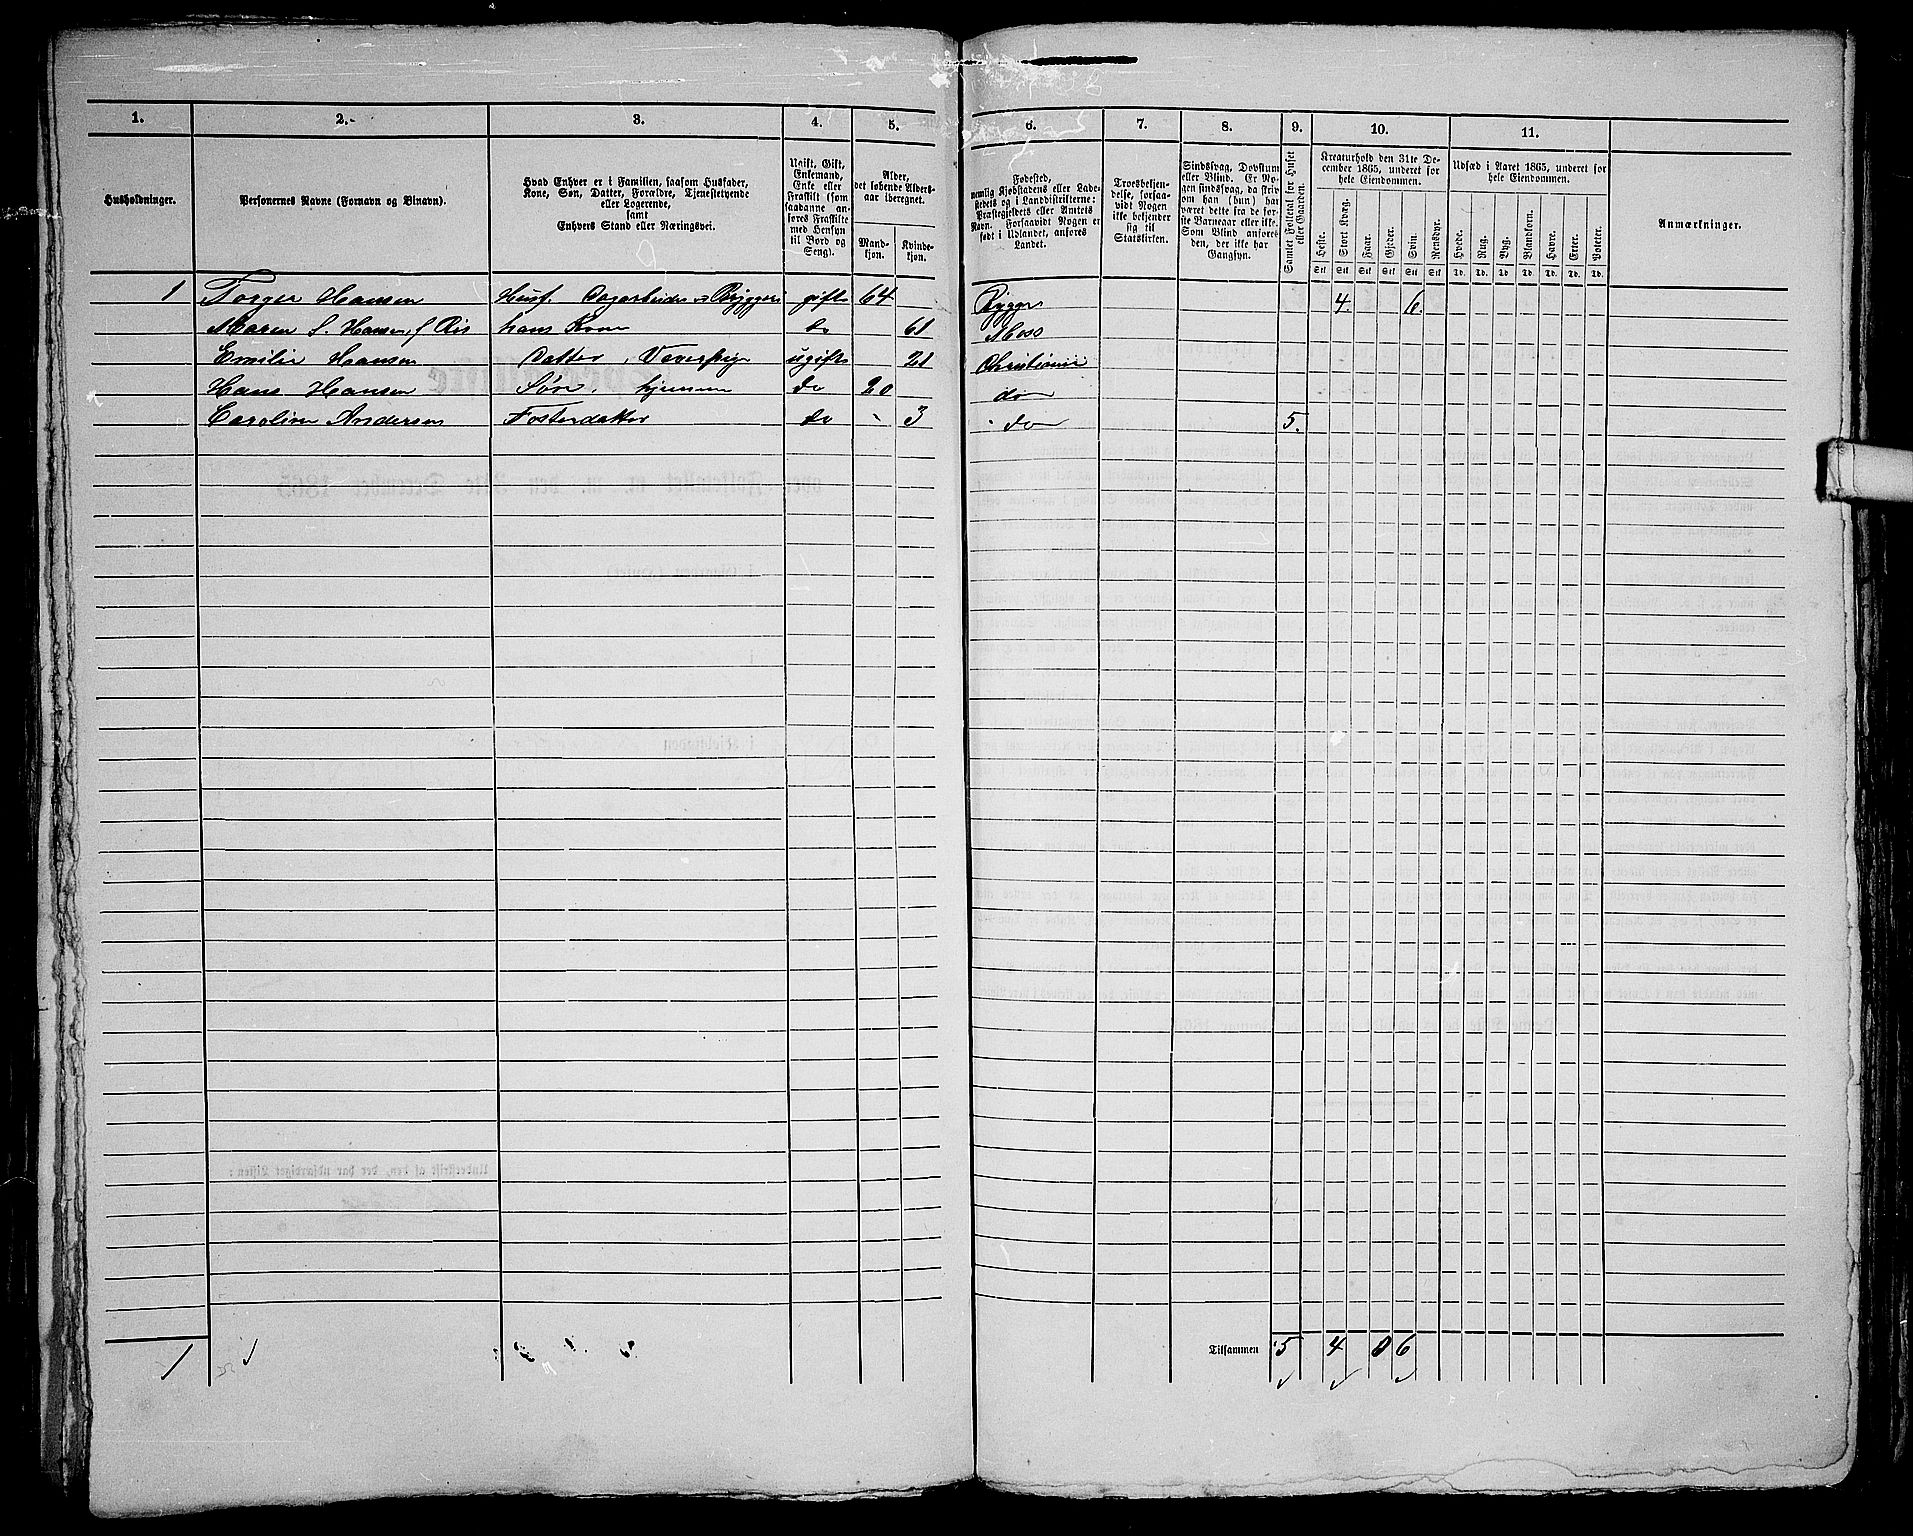 1. 2. 3. 4. 5. 6. 7. 8. 9. 10. 11.
Husholdninger.
Personernes Navne (Fornavn og Binavn).
Hvad Enhver er i Familien, saasom Husfader,
Kone, Søn, Datter, Forældre, Tjenestetyende
eller Logerende,
samt
Enhvers Stand eller Næringsvei.
Ugift, Gift,
Enkemand,
Enke eller
Fraskilt (som
saadanne an-
føres Fraskilte
med Hensyn
til Bord og
Seng).
Alder,
det løbende Alders-
aar iberegnet.
Mand-
kjøn.
Kvinde-
kjøn.
Fødested,
nemlig Kjøbstadens eller Lade-
stedets og i Landdistrikterne:
Præstegjeldets eller Amtets
Navn. Forsaavidt Nogen er
født i Udlandet, anføres
Landet.
Troesbekjen-
delse, forsaa-
vidt Nogen
ikke bekjender
sig til
Statskirken.
Sindssvag, Døvstum
eller Blind. Er No-
gen sindssvag, da skriv
om han (hun) har
været dette fra de før-
ste Barneaar eller ikke.
Som Blind anføres
den, der ikke har
Gangsyn.
Samlet Folketal for Huset
eller Gaarden.
Kreaturhold den 31te De-
cember 1865, underet for
hele Eiendommen.
Heste. Stort Kvæg. Faar. Gjeder. Svin. Rensdyr.
Stk Stk Stk Stk Stk Stk
Udsæd i Aaret 1865, underet for
hele Eiendommen.
Hvede. Rug. Byg. Blandkorn. Havre. Erter. Poteter.
Td. Td. Td Td Td. Td. Td.
Anmærkninger.
1 Torger Hansen Husf. Dagarbeider v Bryggeri gift 64 Rygge 4. 6.
Maren S. Hansen, f Ris hans Kone do 61 Moss
Emilie Hansen Datter, Væverpige ugift 21 Christiania
Hans Hansen Søn, hjemme do 20 do
Caroline Andersen Fosterdatter do 3 do 5.
1 Tilsammen 5 4 0 6